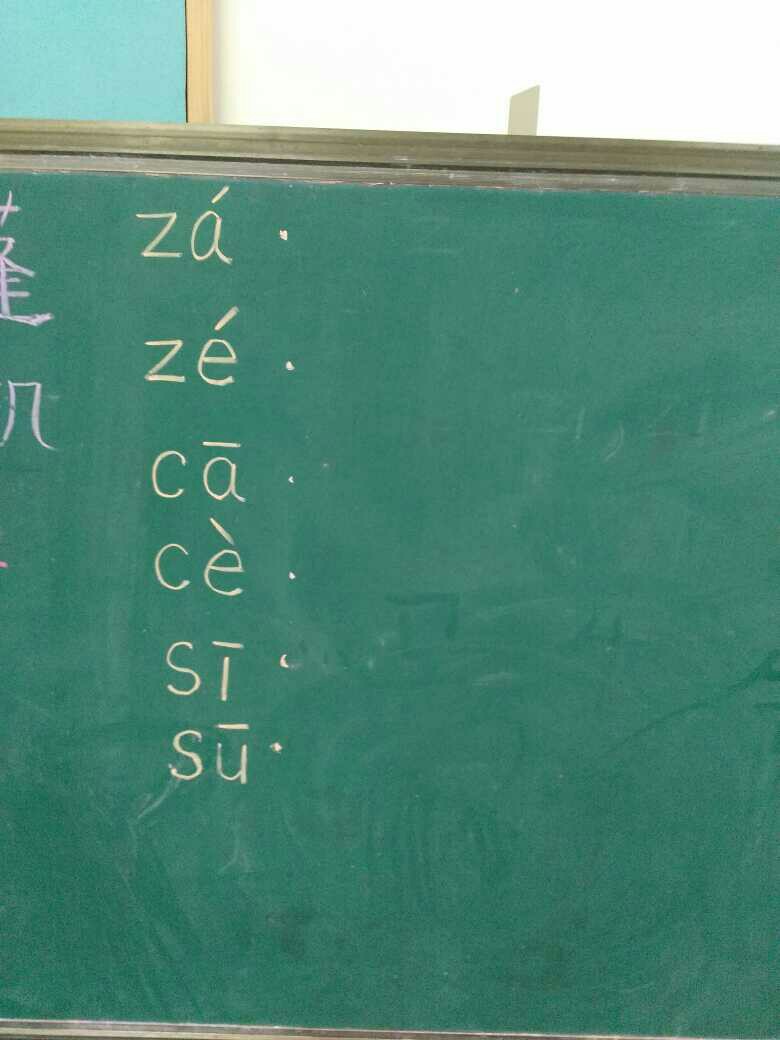 zá
zé
cā
cè
sī
sū